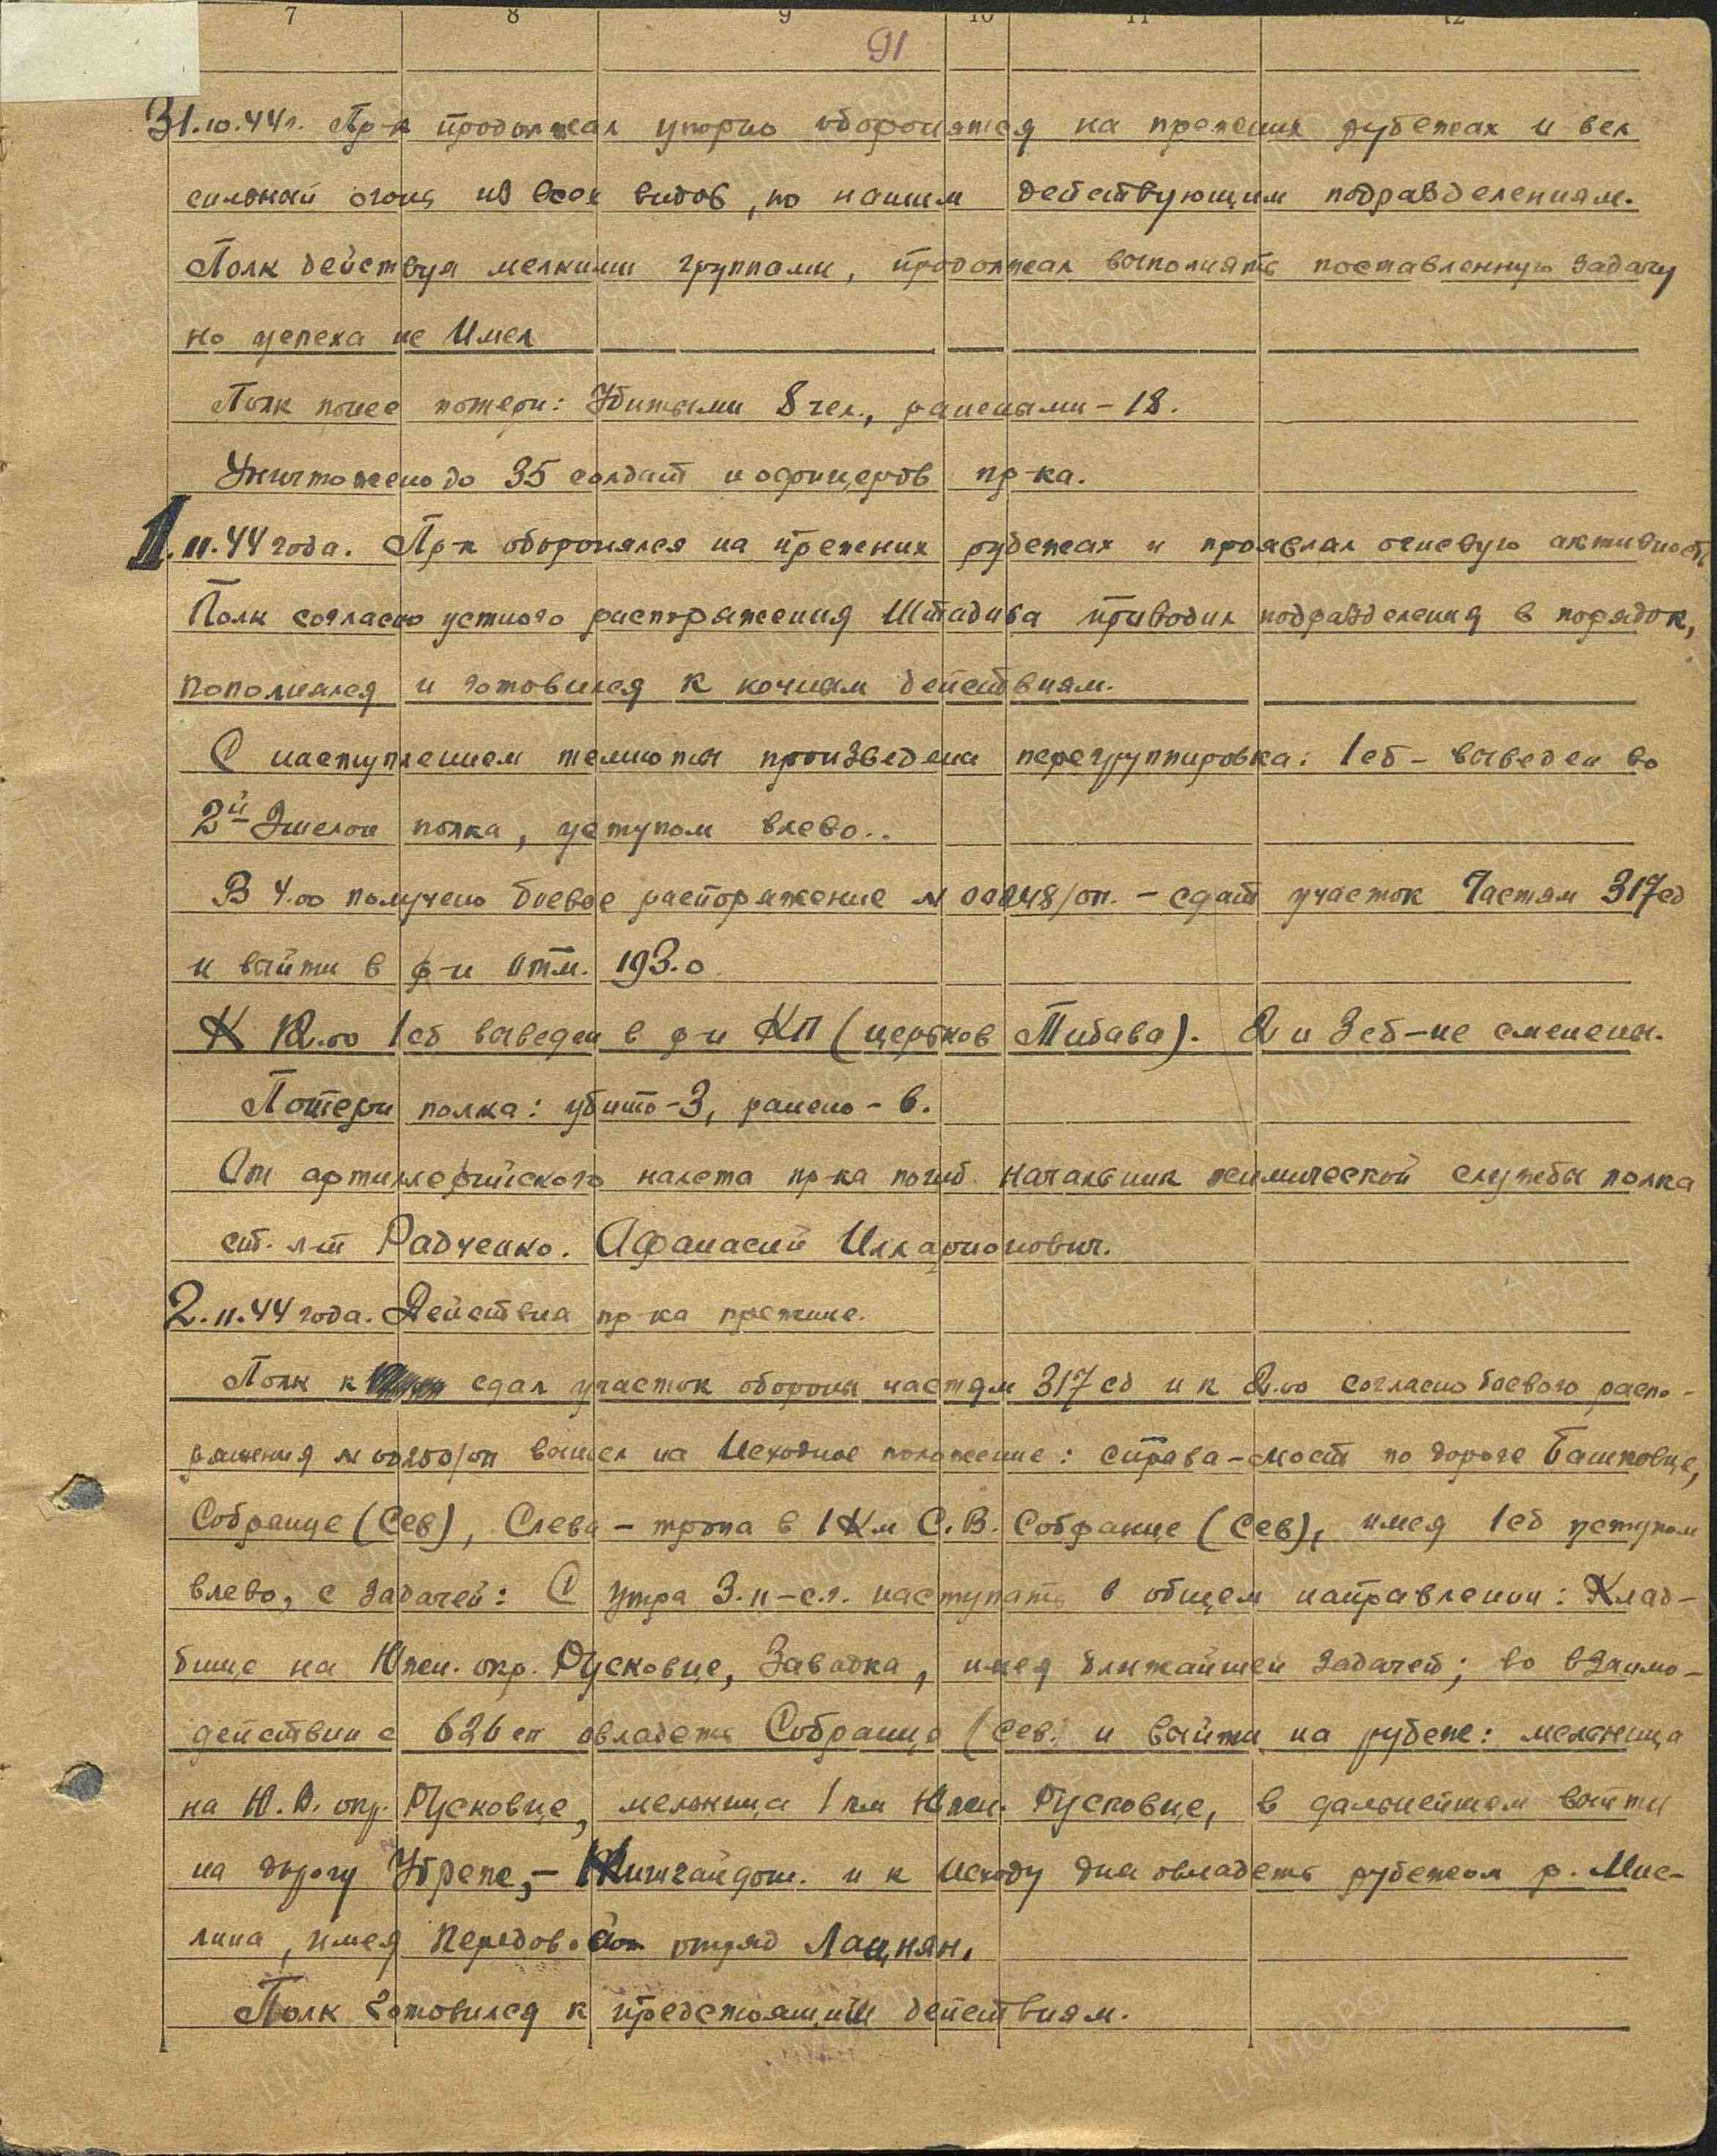 7 8 9 10 11 12
91
31.10.44г. Пр-к продолжал упорно оборонятся на прежних рубежах и вел
сильный огонь из всех видов, по нашим действующим подразделениям.
Полк действуя мелкими группами, продолжал выполнять поставленную задачу
но успеха не Имел
Полк понес потери: Убитыми 8 чел., ранеными – 18.
Уничтожено до 35 солдат и офицеров пр-ка.
1.11.44 года. Пр-к оборонялся на прежних рубежах и проявлял огневую активность
Полк согласно устного распоряжения Штадива приводил подразделения в порядок,
пополнялся и готовился к ночным действиям.
С наступлением темноты произведена перегруппировка: 1сб – выведен во
2й Эшелон полка, уступом влево..
В 4.00 получено боевое распоряжение № 00248/оп. – сдать участок Частям 317сд
и выйти в р-н Отм. 193.0
К 12.00 1сб выведен в р-н КП (церьков Тибава). 2 и 3 сб – не сменены.
Потери полка: убито – 3, ранено – 6.
От артиллерийского налета пр-ка погиб начальник химической службы полка
ст. л-т Радченко. Афанасий Илларионович.
2.11.44 года. Действия пр-ка прежние.
Полк к сдал участок обороны частям 317 сд и к 2.00 согласно боевого распо-
ряжения № 00250/оп вышел на Исходное положение: справа – мост по дороге Башковце,
Собранце (Сев), Слева – тропа в 1 Км С.В. Собранце (Сев), имея 1сб уступом
влево, с задачей: С утра 3.11-с.г. наступать в общем направлении: Клад-
бище на Южн. окр. Русковце, Завадка, имея ближайшей задачей; во взаимо-
действии с 626 сп овладеть Собранце (Сев.) и выйти на рубеж: мельница
на Ю.В. окр. Русковце, мельница 1 км Южн. Русковце, в дальнейшем выйти
на дорогу Убреже, – и к Исходу дня овладеть рубежом р. Мис-
лина, имея Передовой отряд Лацнян.
Полк готовился к предстоящим действиям.